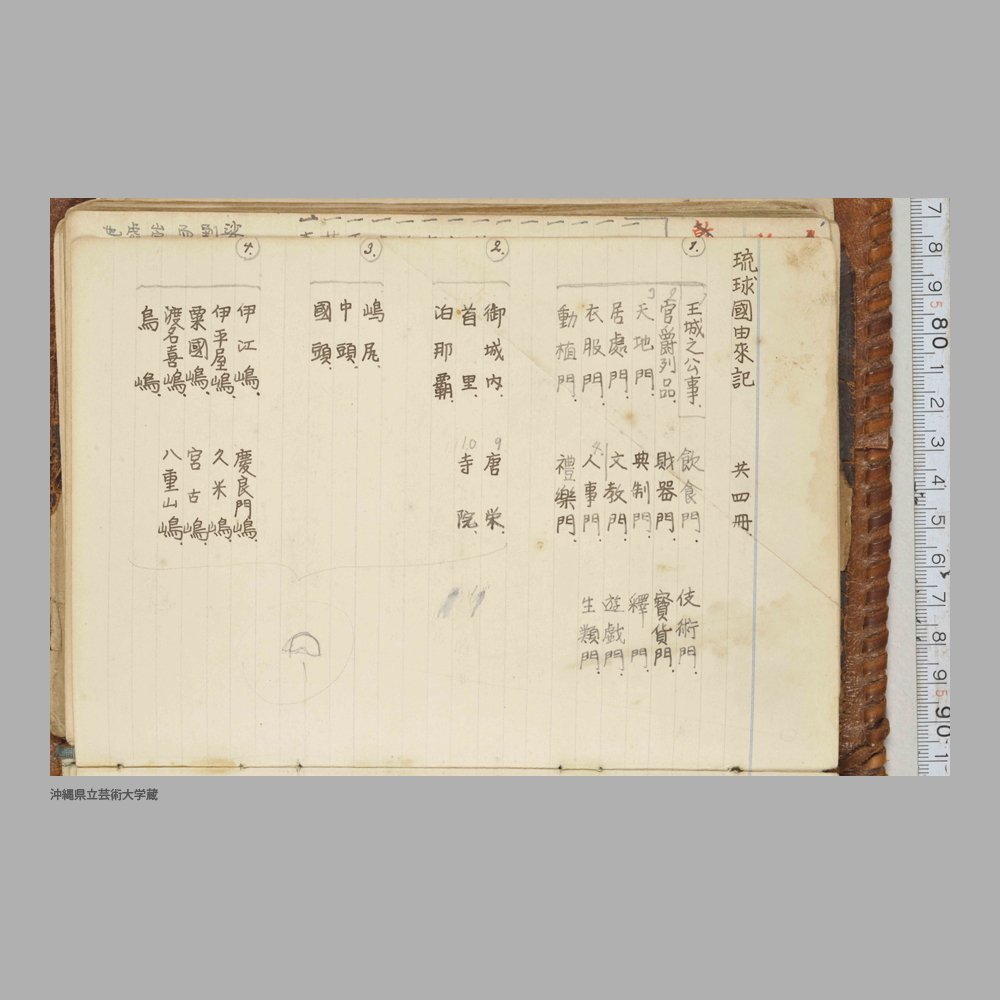 琉球國由來記 共四冊.
1.
王城之公事. 飲食門. 伎術門.
2 官爵列品. 財器門. 寳貨門.
3 天地門. 典制門. 釋門.
居處門. 文教門. 遊戲門.
衣服門. 4. 人事門. 生類門.
動植門. 禮樂門.
2.
御城内. 9 唐榮.
首里. 10 寺院.
泊那覇.
3.
嶋尻.
中頭.
國頭.
4.
伊江嶋. 慶良門嶋.
伊平屋嶋. 久米嶋.
粟國嶋. 宮古嶋.
渡名喜嶋. 八重山嶋.
鳥嶋.
7 8 9 5 80 1 2 3 4 5 6 7 8 9 5 90 1
沖縄県立芸術大学蔵